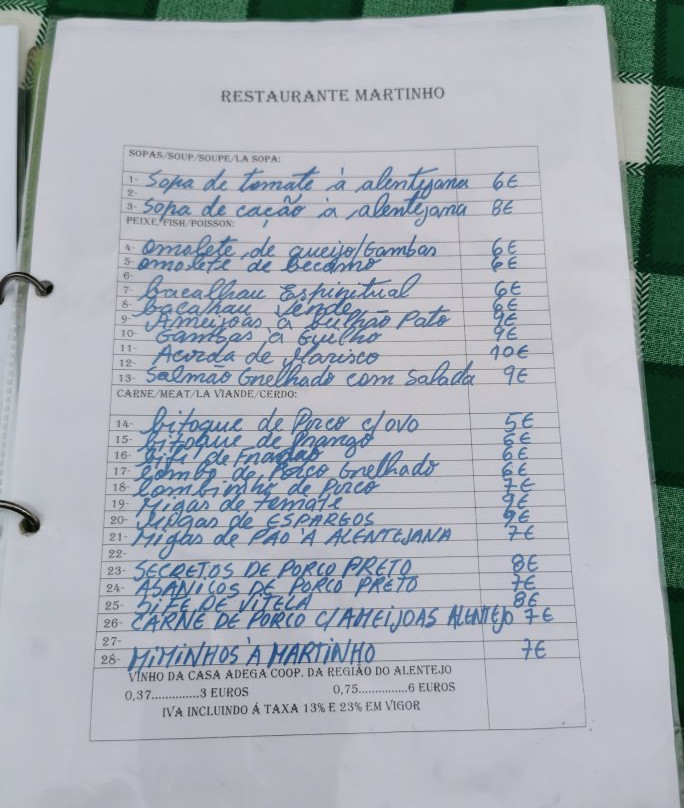 RESTAURANTE MARTINHO
SOPAS/SOUP/SOUPE/LA SOPA:
1- Sopa de tomate à alentejana 6€
2-
3- Sopa de cação à alentejana 8€
PEIXE/FISH/POISSON:
4- omolete de queijo/Gambas 6€
5- omolete de 6€
6-
7- bacalhau Espiritual 6€
8- bacalhau 6€
9- Ameijoas à Bulhão Pato 9€
10- Gambas à 9€
11- Acorda de Marisco 10€
12-
13- Salmão Grelhado com Salada 9€
CARNE/MEAT/LA VIANDE/CERDO:
14- bitoque de Porco c/ovo 5€
15- bitoque de Frango 6€
16- bife de 6€
17- Lombo de Porco Grelhado 6€
18- Lombinho de Porco 7€
19- Migas de tomate 9€
20- Migas de ESPARGOS 9€
21- Migas de PÃO À ALENTEJANA 7€
22-
23- SECRETOS DE PORCO PRETO 8€
24- DE PORCO PRETO 7€
25- BIFE DE VITELA 8€
26- CARNE DE PORCO C/AMEIJOAS ALENTEJO 7€
27-
28- MIMINHOS À MARTINHO 7€
VINHO DA CASA ADEGA COOP. DA REGIÃO DO ALENTEJO
0,37..............3 EUROS 0,75...............6 EUROS
IVA INCLUINDO Á TAXA 13% E 23% EM VIGOR